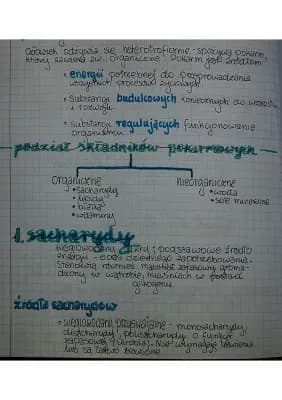 Człowiek odżywia się heterotroficznie - spożywa pokarm,
który zawiera zw. organiczne. Pokarm jest źródłem
• energii potrzebnej do przeprowadzania
wszystkich procesów życiowych
• substancji budulcowych koniecznych do wzrostu
i rozwoju
• substancji regulujących funkcjonowanie
organizmu
podział składników pokarmowych
organiczne
nieorganiczne
• sacharydy
• woda
• lipidy
• sole mineralne
• białka
• witaminy
1. sacharydy
węglowodany, cukry; podstawowe źródło
energii - dziennego zapotrzebowania.
Stanowią również materiał zapasowy groma-
dzony w wątrobie, mięśniach w postaci
glikogenu
źródła sacharydów
• węglowodany przyswajalne - monosacharydy,
disacharydy, polisacharydy o funkcji
zapasowej (skrobia). Nie wymagają trawienia
lub są łatwo trawione